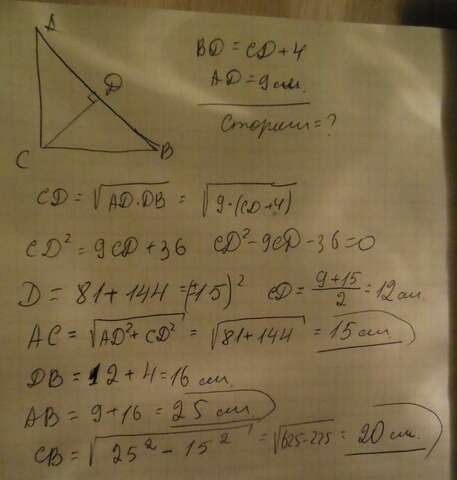 A
D
C
B
BD = CD+4
AD = 9 см.
Сторон = ?
CD = √AD·DB = √9·(CD+4)
CD² = 9CD + 36 CD² - 9CD - 36 = 0
D = 81 + 144 = (15)² CD = (9+15)/2 = 12 см
AC = √AD² + CD² = √81+144 = 15 см.
DB = 12 + 4 = 16 см.
AB = 9 + 16 = 25 см.
CB = √25² - 15² = √625-225 = 20 см.